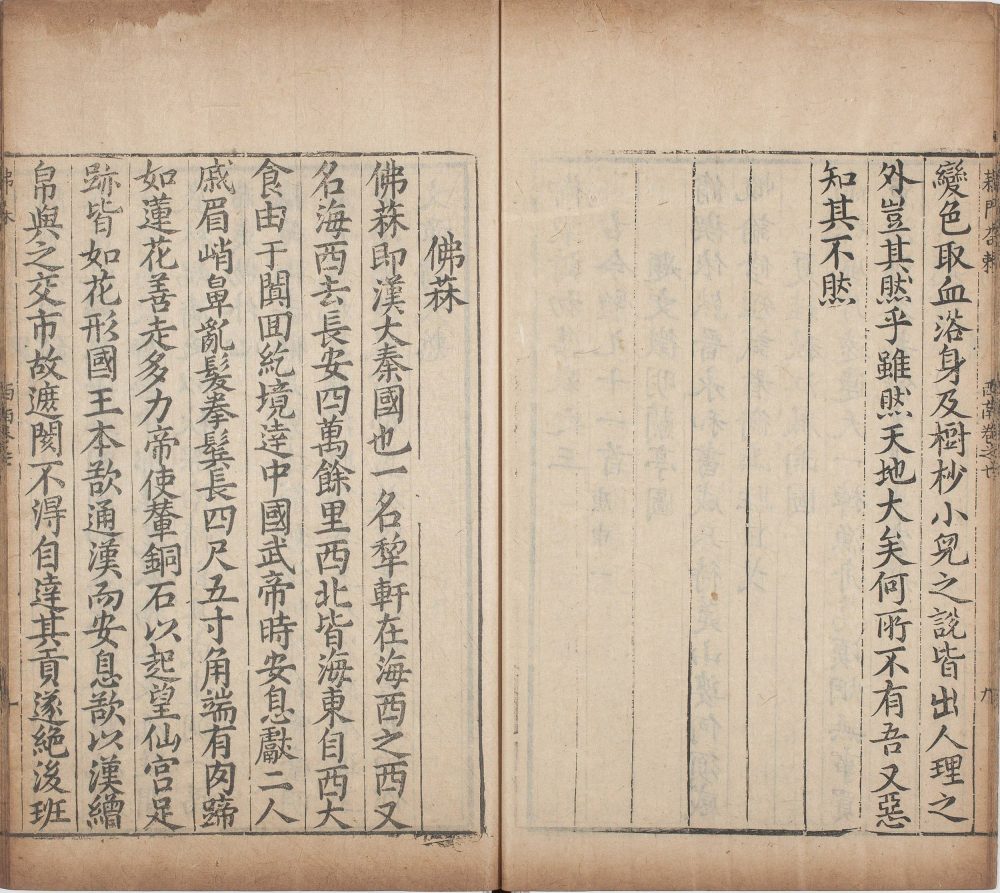 變色取血浴身及樹杪小兒之說皆出人理之
外豈其然乎雖然天地大矣何所不有吾又惡
知其不然
佛菻
佛菻即漢大秦國也一名犂軒在海西之西又
名海西去長安四萬餘里西北皆海東自西大
食由于闐回紇境逹中國武帝時安息獻二人
戚眉峭鼻亂髮拳鬂長四尺五寸角端有肉蹄
如蓮花善走多力帝使輦銅石以起望仙宮足
跡皆如花形國王本欲通漢而安息欲以漢繒
帛與之交市故遮閡不得自達其貢遂絕後班